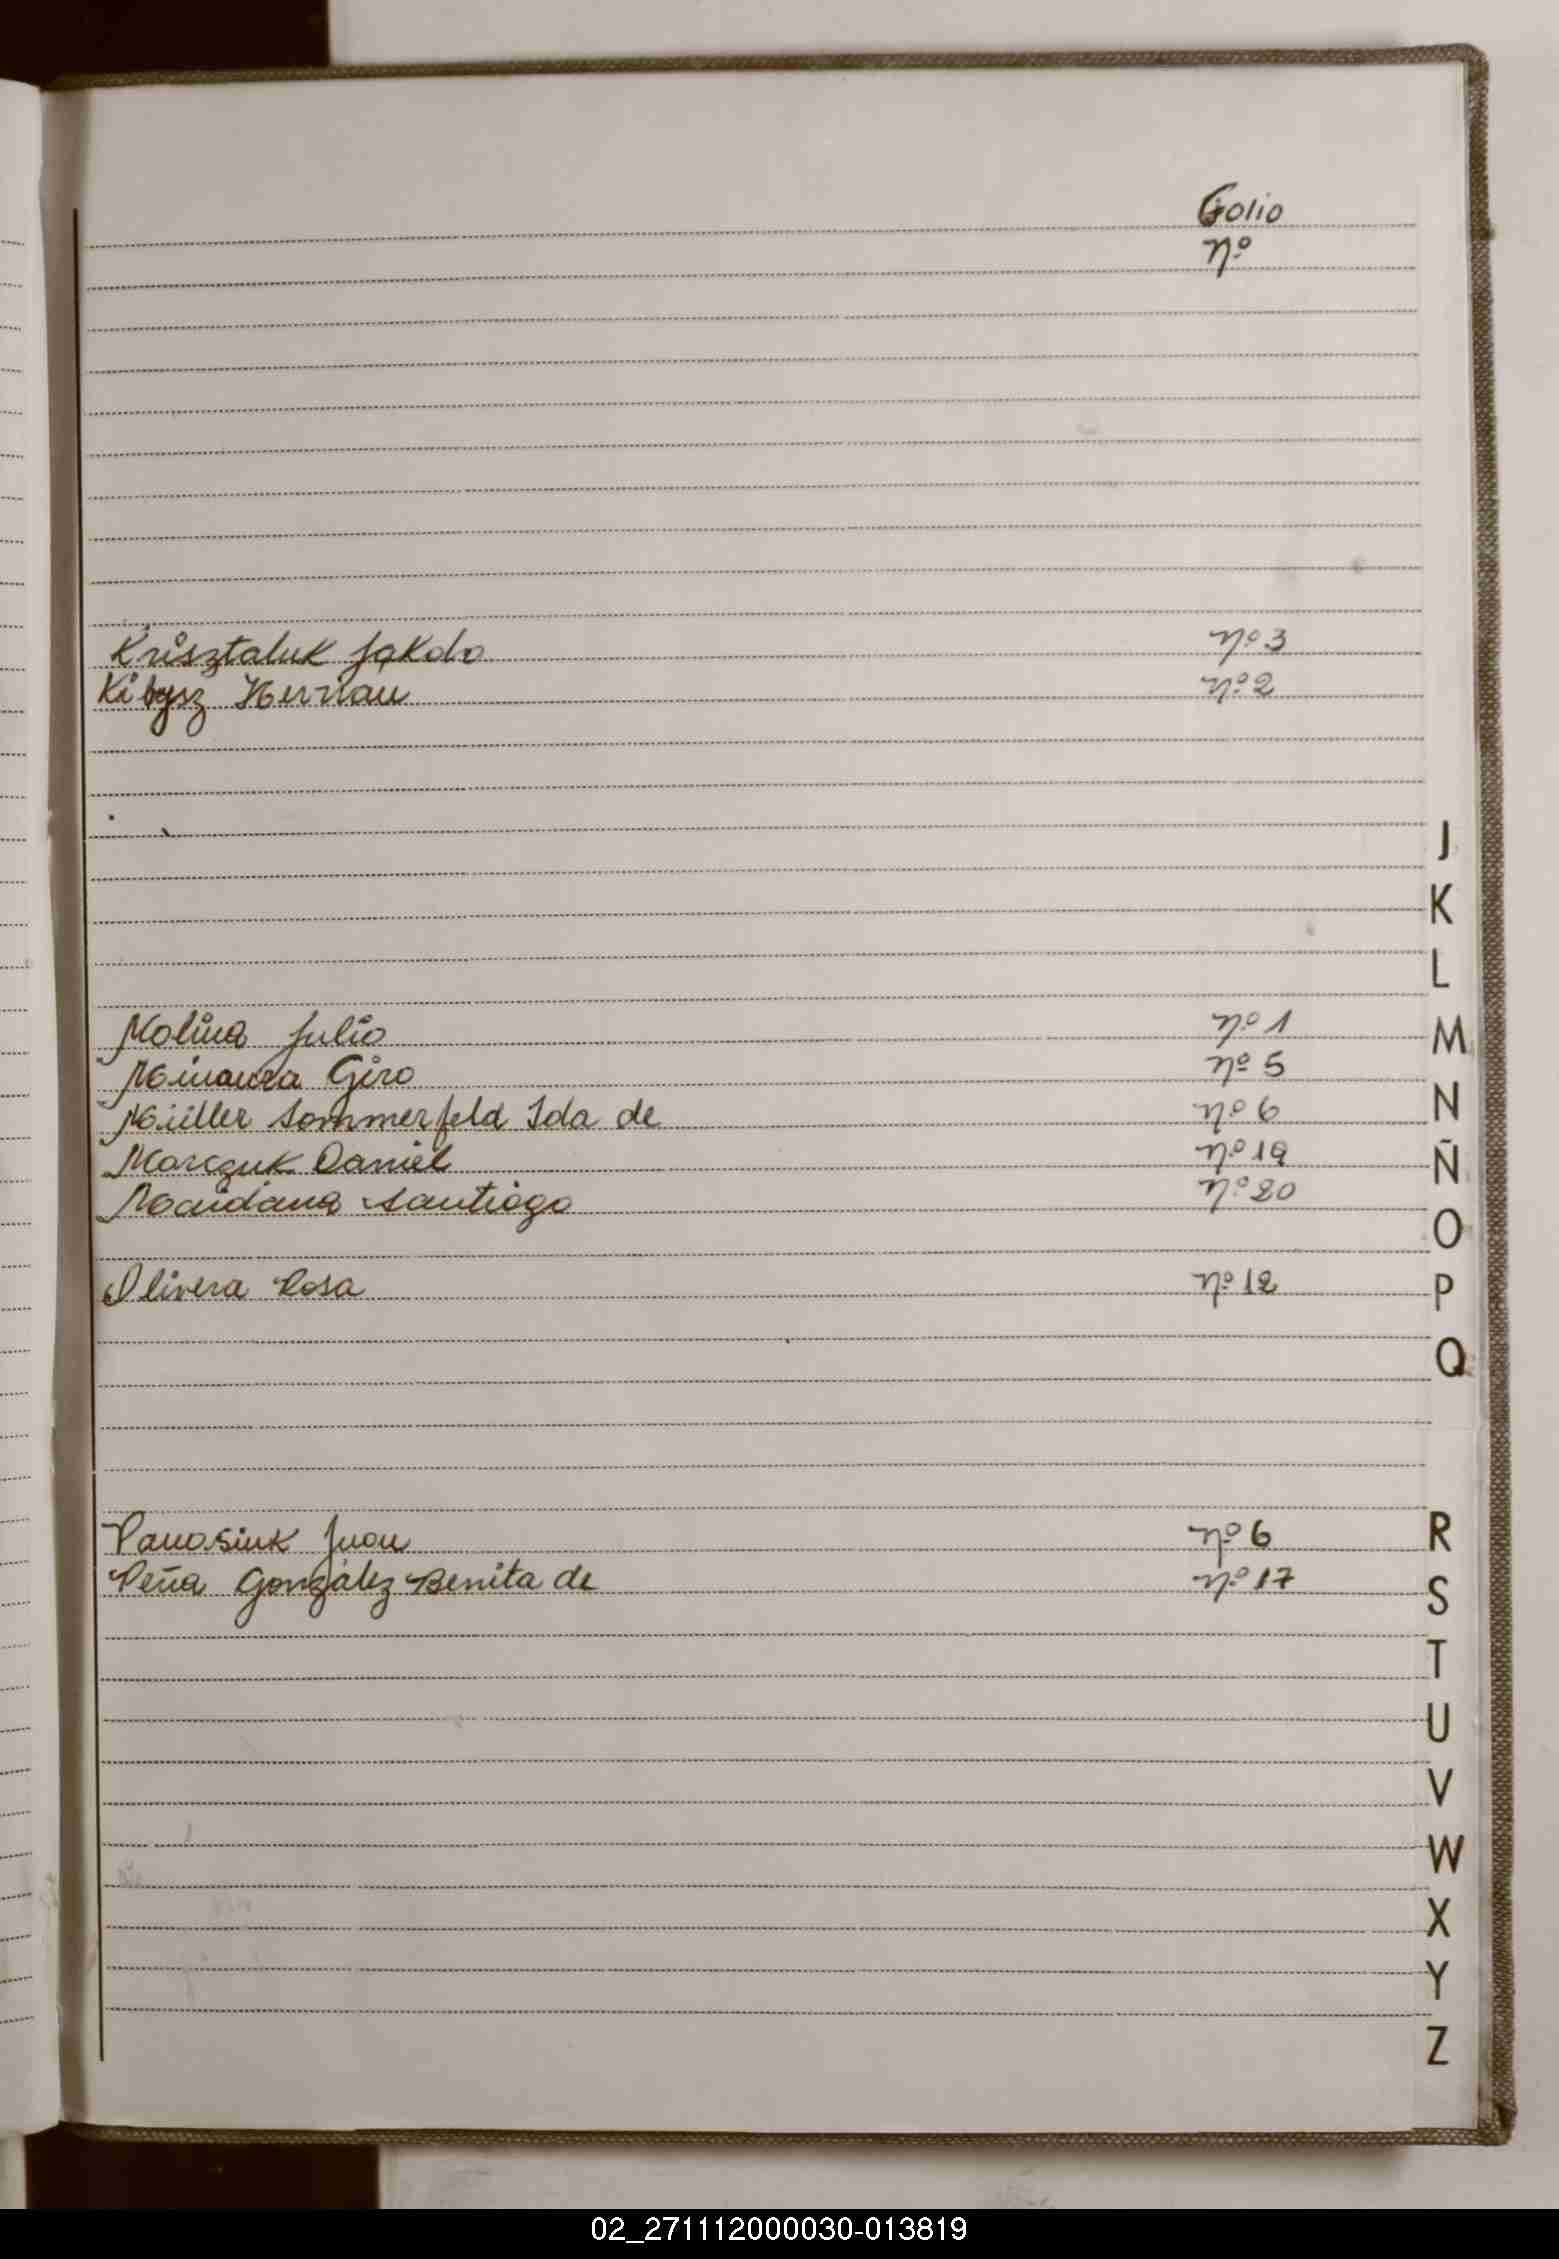 Folio
nº
Krisztaluk Jakobo nº 3
Kibysz Hernan nº 2
J
K
L
Molina Julio nº 1
M
Minaura Giro nº 5
Müller Sommerfeld Ida de nº 9
N
Marczuk Daniel nº 19
Ñ
Maidana Santiago nº 20
O
Olivera Rosa nº 12
P
Q
Panasiuk Juan nº 6
R
Peña González Benita de nº 17
S
T
U
V
W
X
Y
Z
02_271112000030-013819